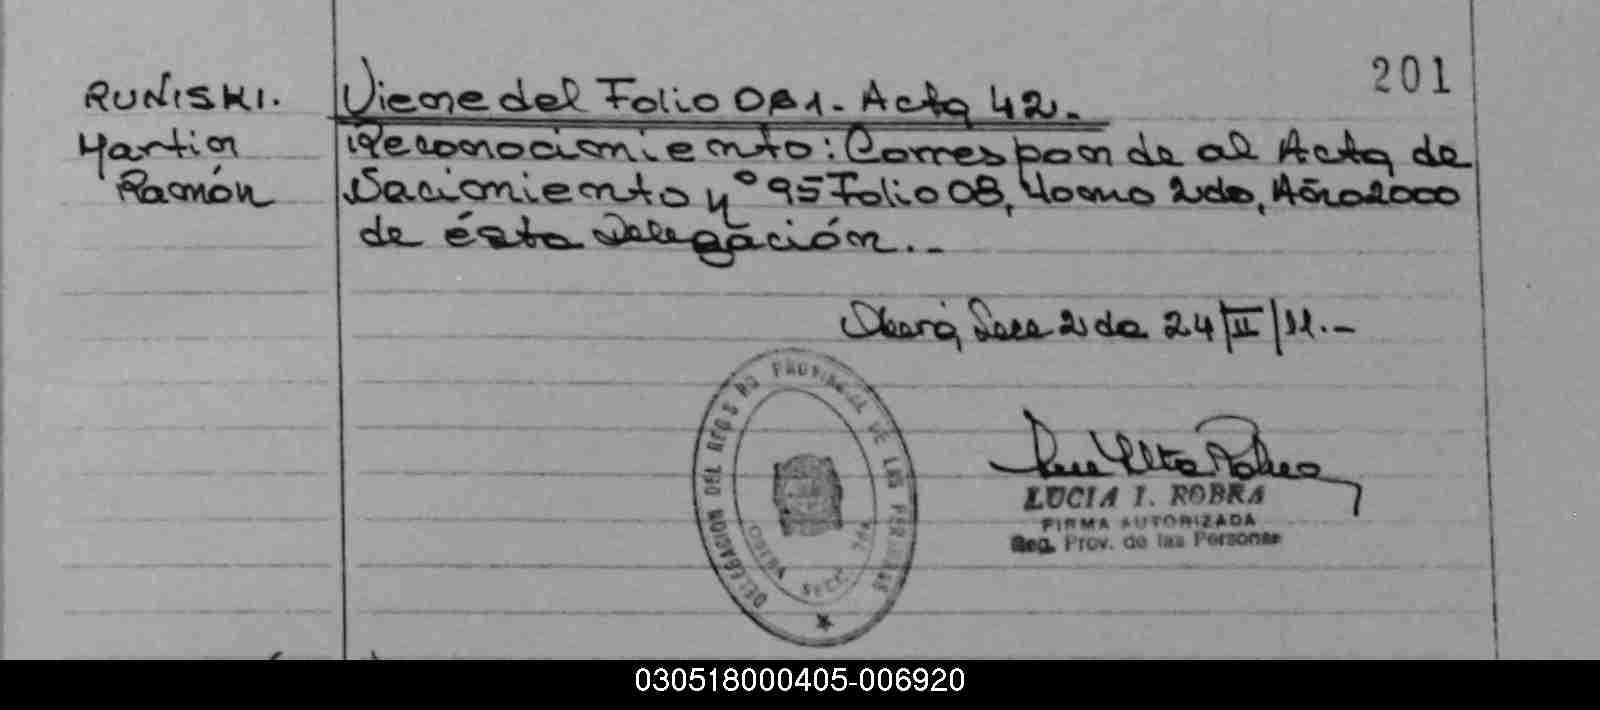 201
RUÑISKI.
Martin
Ramón
Viene del Folio 081.- Acta 42.-
Reconocimiento: Corresponde al Acta de
Nacimiento nº 95 Folio 08, tomo 2do, Año 2000
de ésta Delegación..-
Oberá, Secc 2da 24/II/11.-
DELEGACION DEL REGISTRO PROVINCIAL DE LAS PERSONAS
OBERA SECC. 2DA
LUCIA I. ROBRA
FIRMA AUTORIZADA
Reg. Prov. de las Personas
030518000405-006920